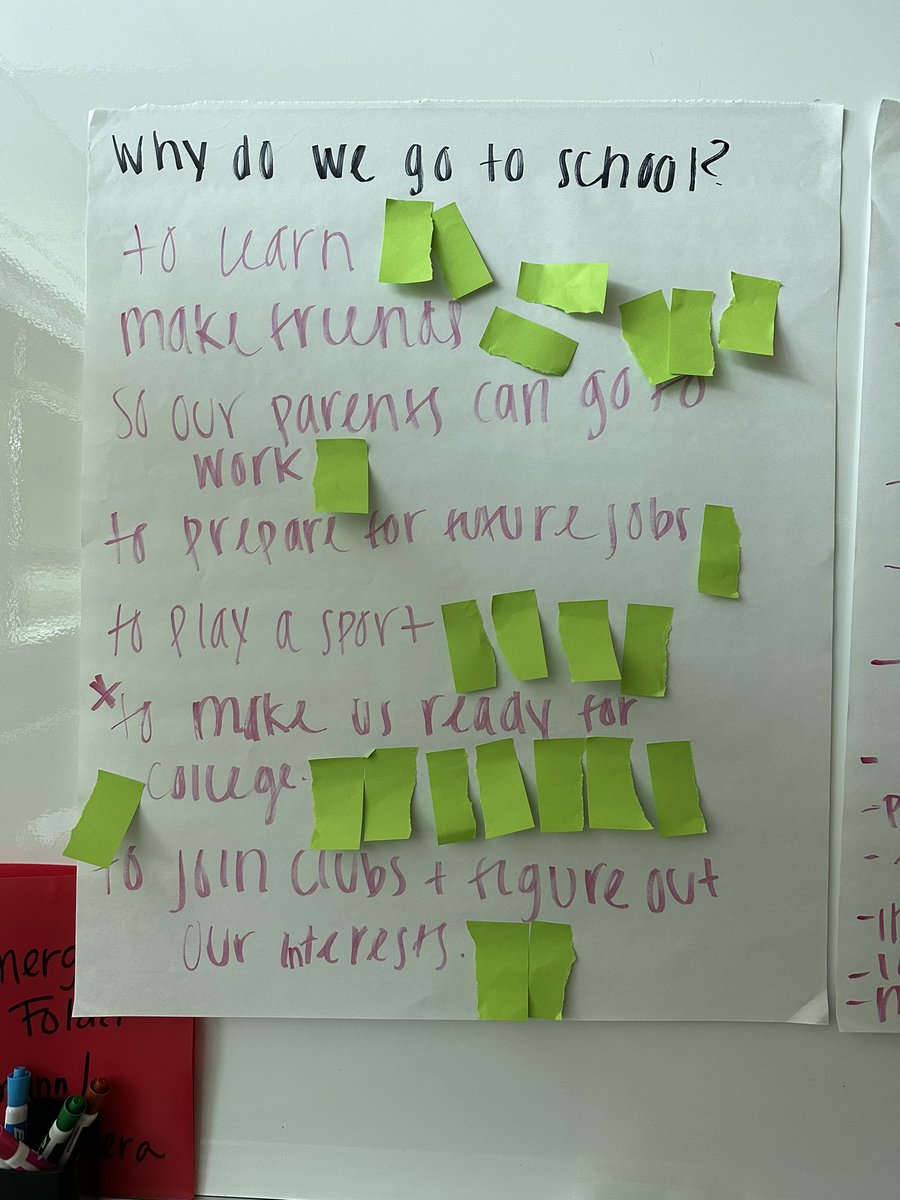 Why do we go to school?
to learn
make friends
so our parents can go to
work
to prepare for future jobs
to play a sport
*to make us ready for
college.
to join clubs + figure out
our interests.